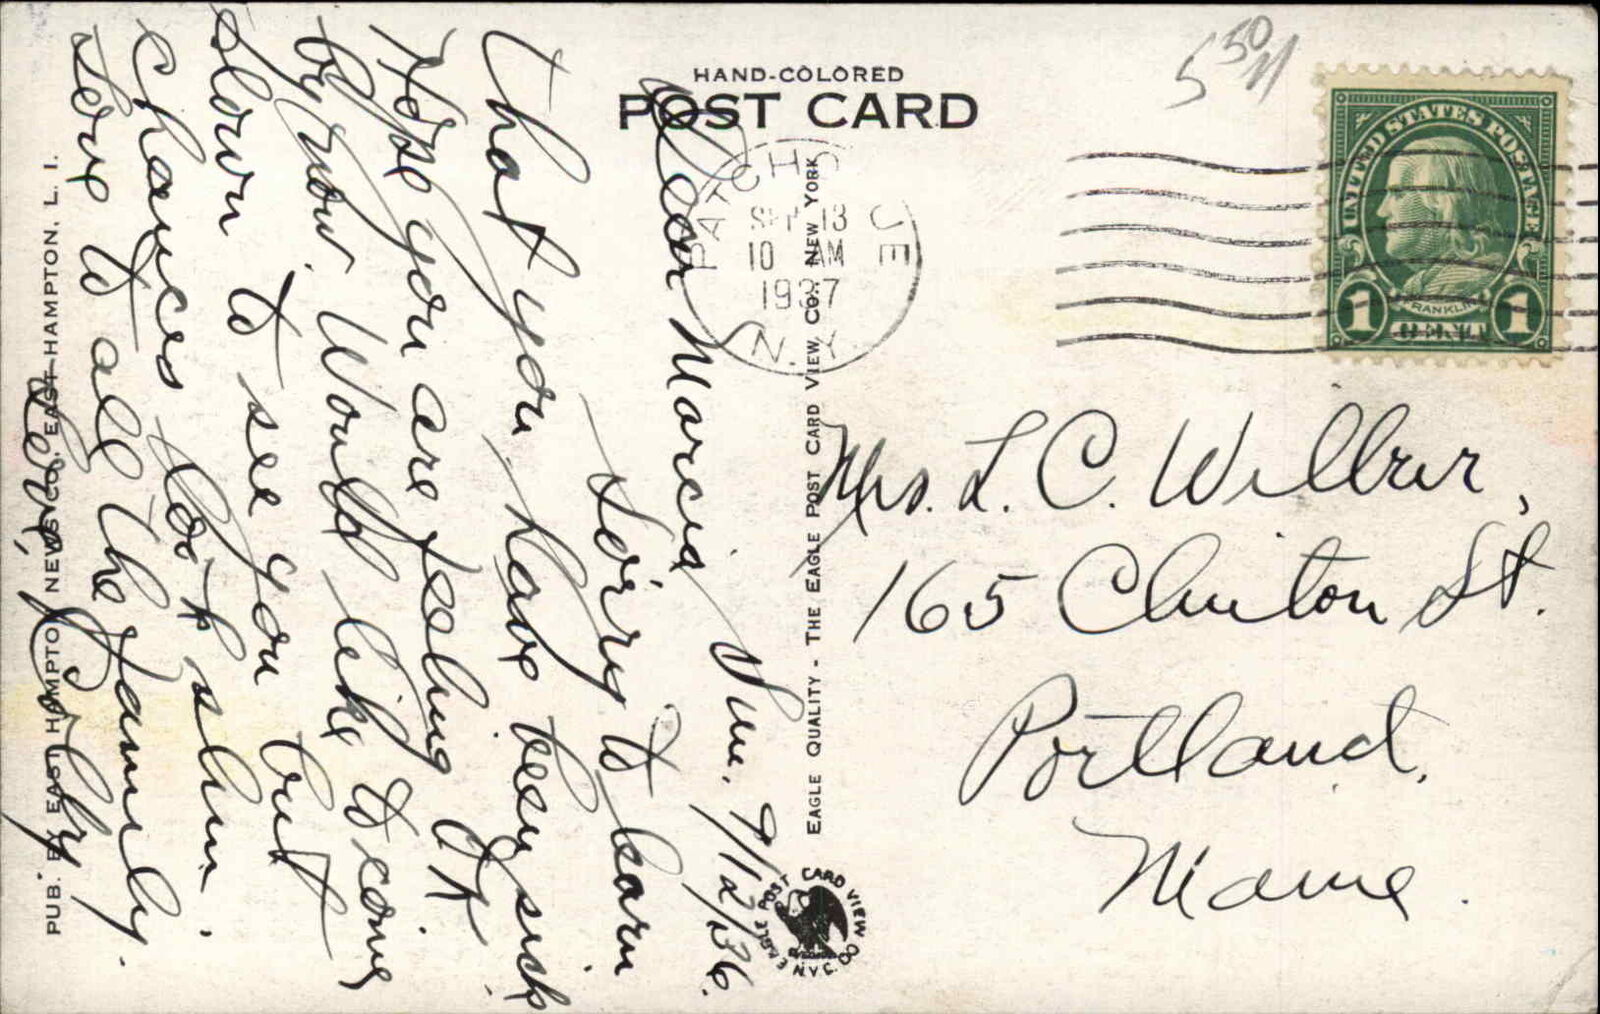 HAND-COLORED
POST CARD
5 50/11
PATCHOGUE
SEP 13
10 AM
1937
N.Y.
UNITED STATES POSTAGE
FRANKLIN
1 CENT 1
Sun. 9/12/36.
Dear Marcia
Sorry to learn
that you have been sick
Hope you are feeling OK
by now. Would like to come
down to see you but
chances look slim.
Love to all the family.
Mrs. L. C. Wilbur,
165 Clinton St.
Portland,
Maine.
EAGLE QUALITY - THE EAGLE POST CARD VIEW CO., NEW YORK
EAGLE POST CARD VIEW CO. N.Y.C.
PUB. BY EAST HAMPTON NEWS CO., EAST HAMPTON, L. I.